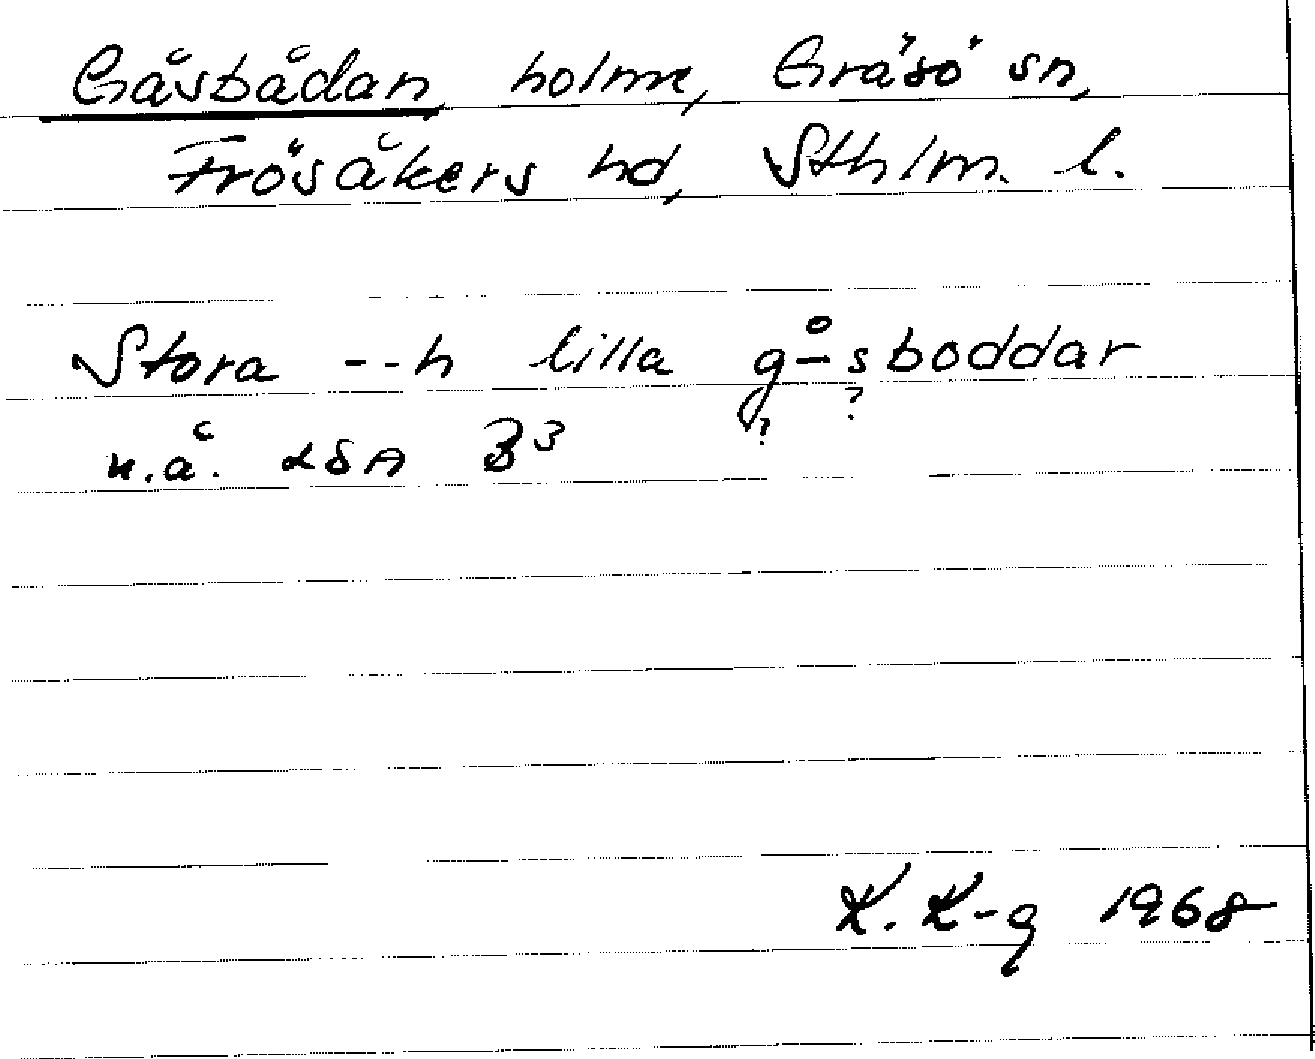 Gåsbådan, holme, Gräsö sn,
Frösåkers hd, Sthlm. l.
Stora --h lilla g-̊sboddar
? ?
u.å. LSA B3
K. K-g 1968